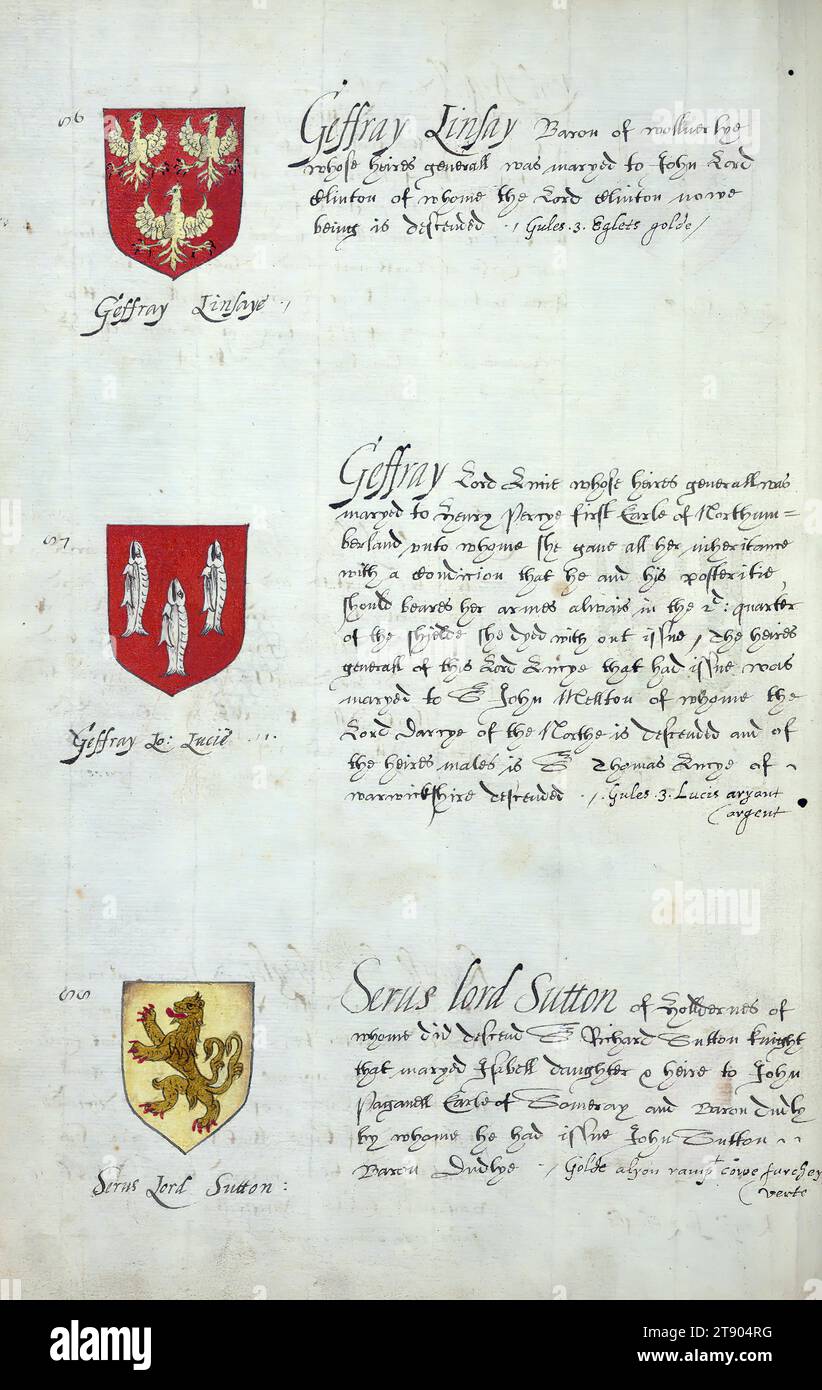 56
Geffray Linsay Baron of wolluerlye
whose heires generall was maryed to John Lord
Clinton of whome the Lord Clinton nowe
being is descended ·/ Gules .3. Eglets golde /
Geffray Linsaye ·/
57
Geffray Lord Lucie whose heires generall was
maryed to Henry Percye first Earle of Northum=
berland, vnto whome she gaue all her inheritance
with a condicion that he and his posteritie
should beares her armes alwais in the 2d: quarter
of the shielde she dyed with out issue, The heires
generall of this Lord Lucye that had issue was
maryed to S John Mellton of whome the
Lord Darcye of the Northe is descended and of
the heires males is S Thomas Lucye of ~
warwickshire descended ·/. Gules .3. Lucis aryant
(argent
Geffray Lo: Lucie ....
58
Serus lord Sutton of Holldernes of
whome did descend S Richard Sutton knight
that maryed Isibell daughter & heire to John
Paganell Earle of Someray and Baron Dudly
by whome he had issue John Sutton ~~
Baron Dudlye ·/ Golde a lyon rampt cowe furchey
(verte
Serus Lord Sutton :
alamy
Image ID: 2T904RG
www.alamy.com